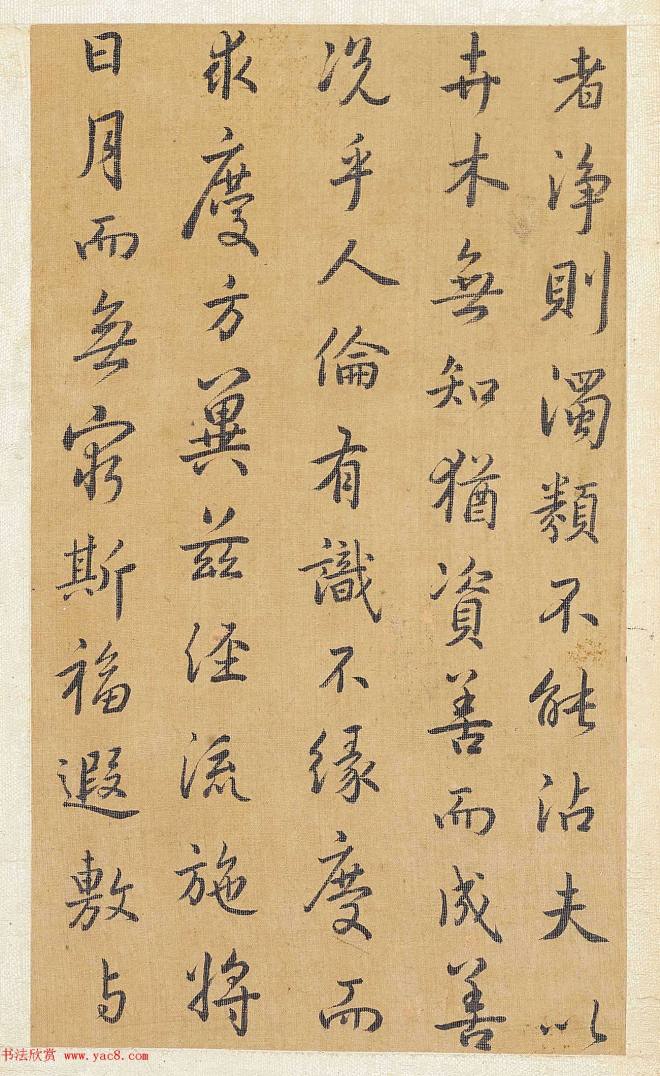 者淨則濁類不能沾夫以
卉木無知猶資善而成善
况乎人倫有識不緣慶而
求慶方冀茲經流施將
日月而無窮斯福遐敷与
书法欣赏 www.yac8.com